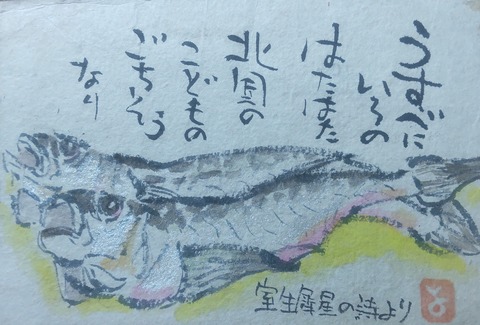 うすべに
いろの
はたはた
北国の
こどもの
ごちそう
なり
室生犀星の詩より
そ